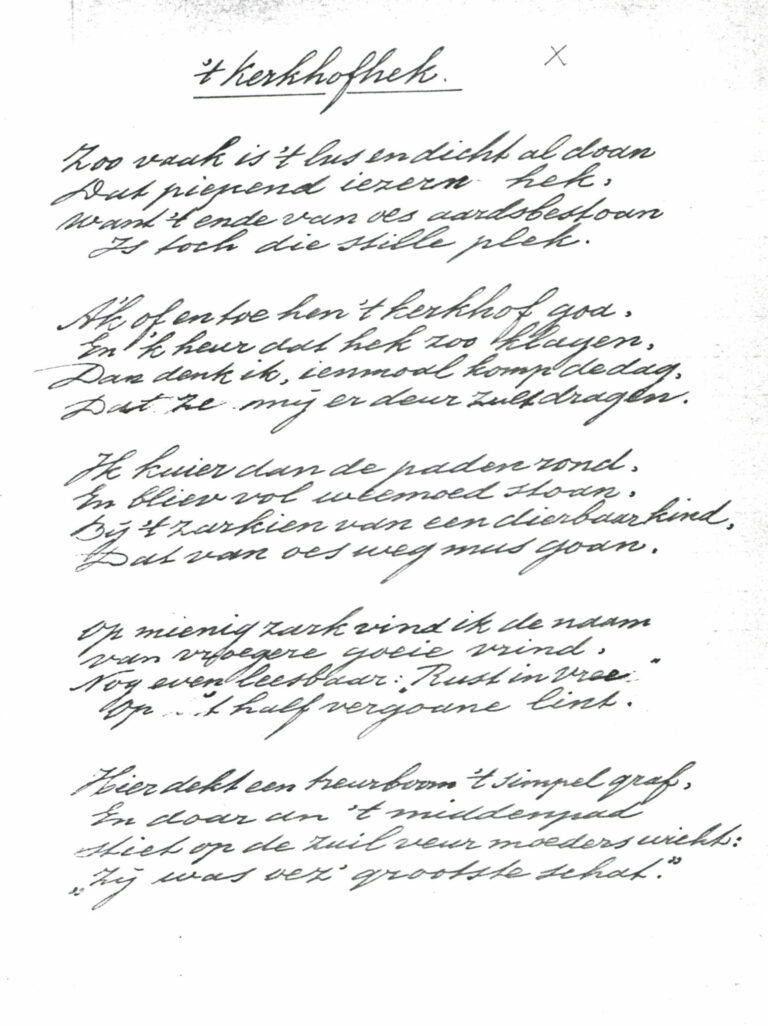 't Kerkhofhek.
X
Zoo vaak is 't lus en dicht al doan
Dat piepend iezern hek,
Want 't ende van oes aardsbestoan
Is toch die stille plek.
A'k of en toe hen 't kerkhof goa,
En 'k heur dat hek zoo klagen,
Dan denk ik, ienmoal komp de dag,
Dat ze mij er deur zult dragen.
Ik kuier dan de paden rond,
En bliev vol weemoed stoan,
Bij 't zarkien van een dierbaar kind,
Dat van oes weg mus goan.
Op mienig zark vind ik de naam
van vroegere goeie vrind,
Nog even leesbaar: "Rust in vree"
Op 't half vergoane lint.
Hier dekt een treurboom 't simpel graf,
En doar an 't middenpad
stiet op de zuil veur moeders wicht:
„Zij was oez' grootste schat."